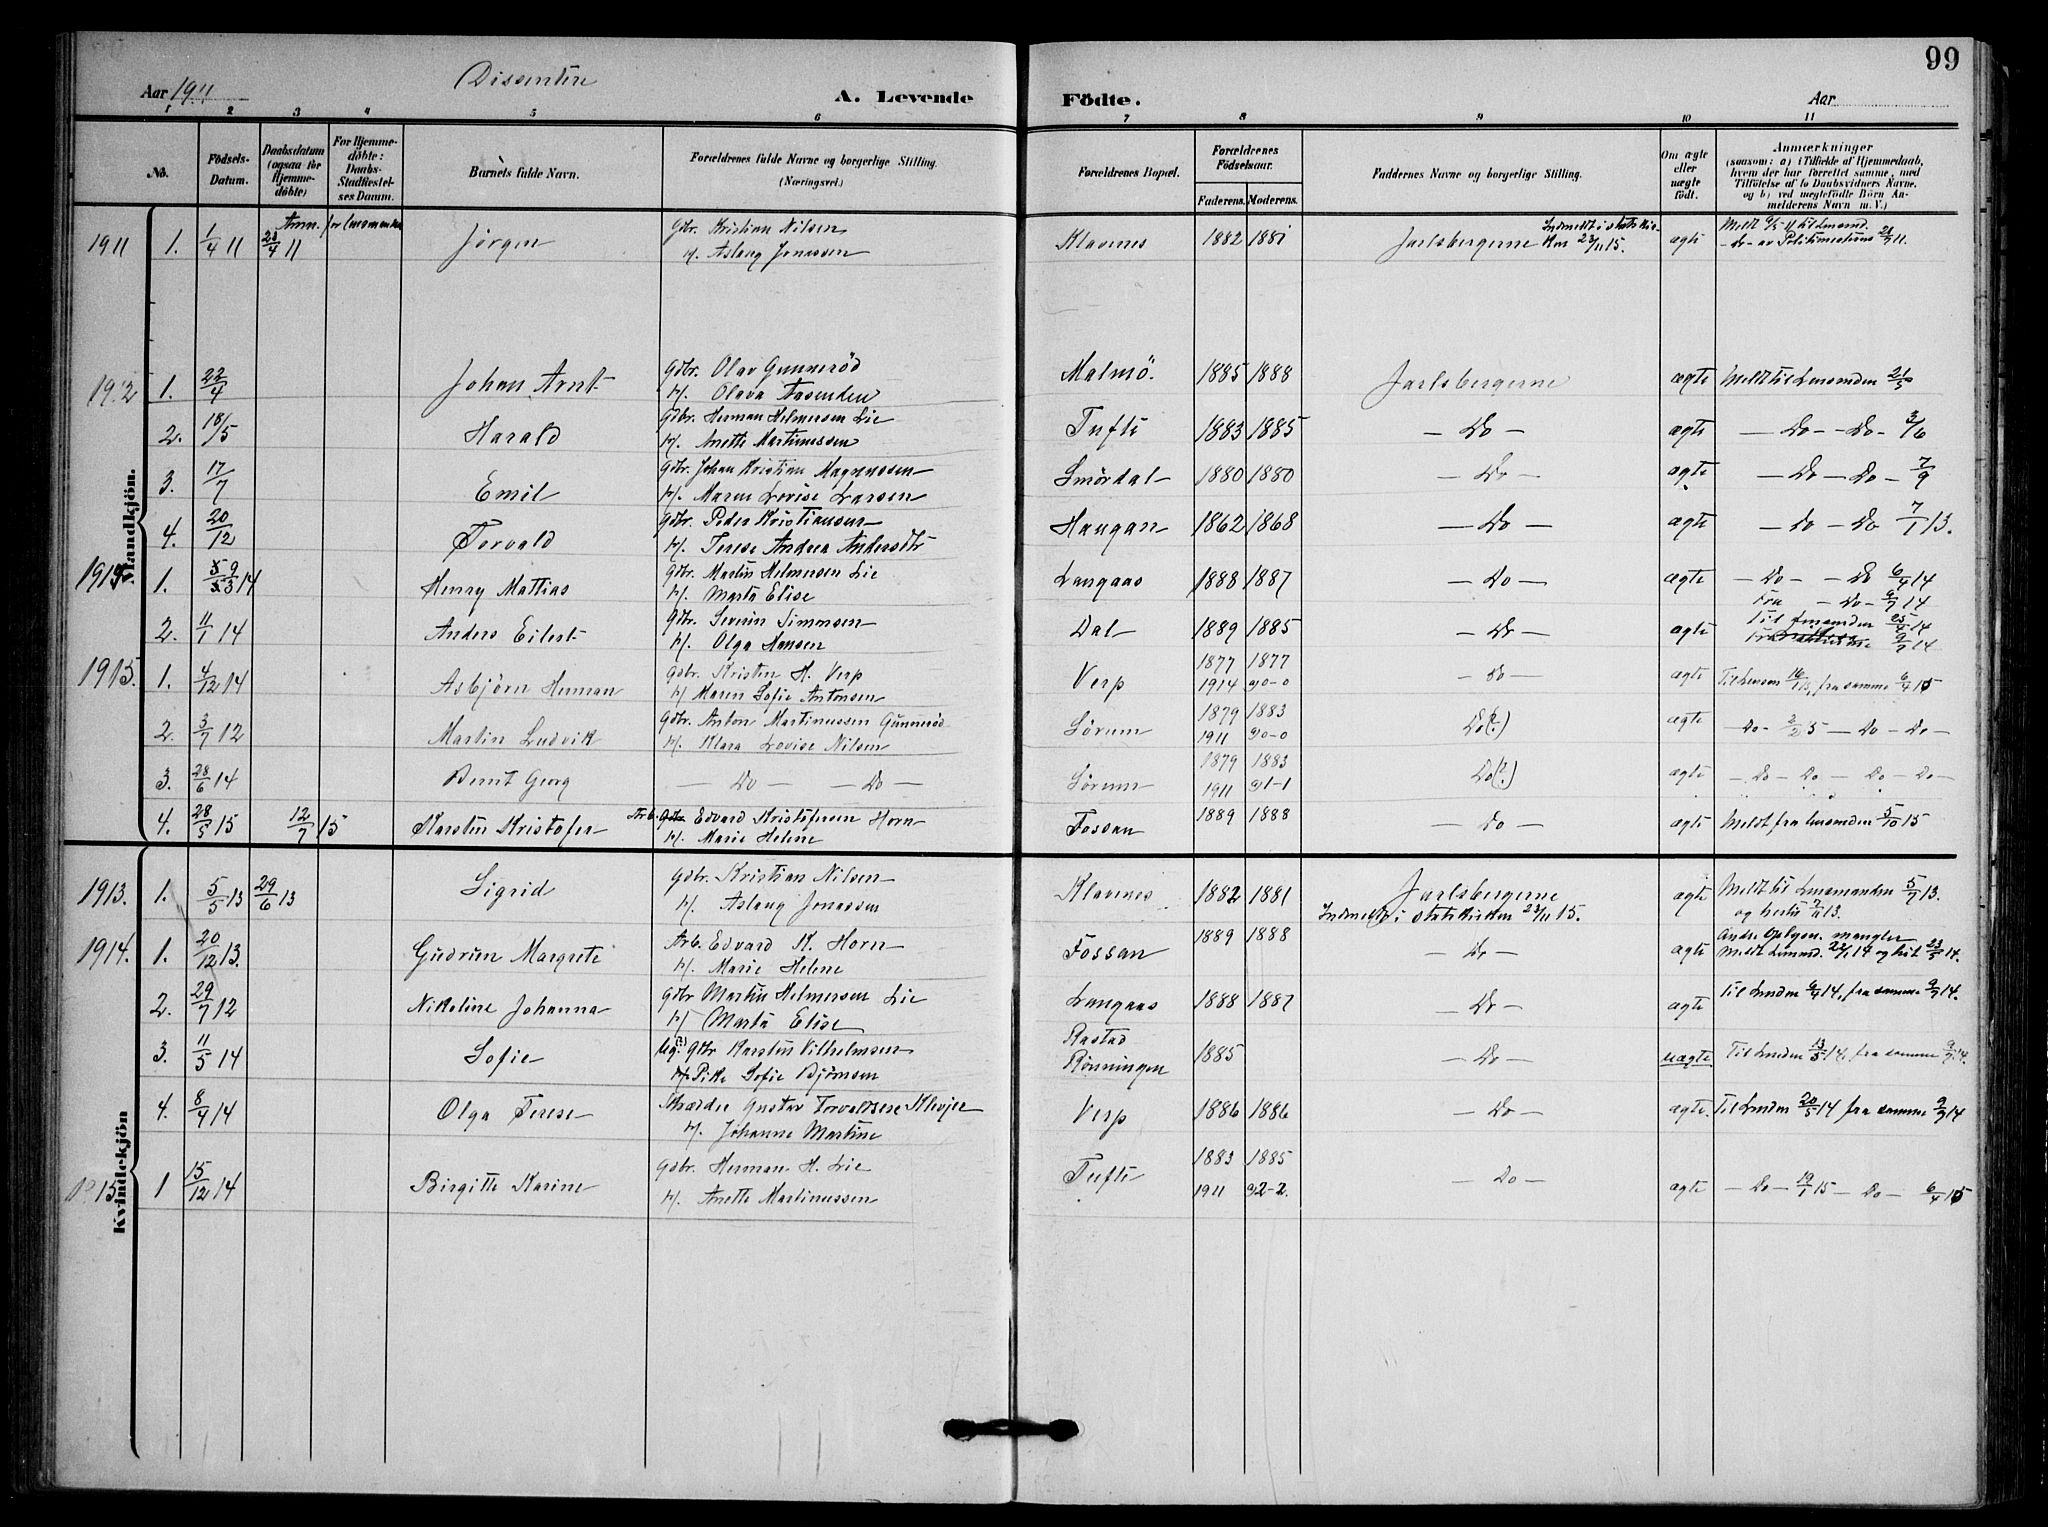 99
Dissentere
Aar 1911 A. Levende Födte. Aar
1 2 3 4 5 6 7 8 9 10 11
No. Födsels-Datum. Daabsdatum (ogsaa for Hjemmedöbte) For Hjemmedöbte: Daabs-Stadfæstelses Datum. Barnets fulde Navn. Forældrenes fulde Navne og borgerlige Stilling. (Næringsvei.) Forældrenes Bopæl. Forældrenes Födselsaar. Faderens. Moderens. Faddernes Navne og borgerlige Stilling. Om ægte eller uægte födt. Anmærkninger (saasom: a) i Tilfælde af Hjemmedaab, hvem der har forrettet samme, med Tilföielse af to Daabsvidners Navne, og b) ved uægtefödte Börn Anmelderens Navn m. V.)
Mandkjön.
1911 1. 1/4 11 23/4 11 Anm. for Lensmanden Jörgen Gdbr. Kristian Nilsen Klavenes 1882 1881 Jarlsbergerne Indmeldt i statskirken 23/11 15. ægte Meldt 9/5 11 til Lensmd.
H/. Aslaug Jonassen – do – av Politimesteren 21/7 11.
1912 1. 22/4 Johan Arnt Gdbr. Olav Gunneröd Malmö. 1885 1888 Jarlsbergerne ægte Meldt til Lensmden 21/5
H/. Olava Aasenden
2. 18/5 Harald Gdbr. Herman Helmersen Lie Tufte 1883 1885 – Do – ægte – Do – – Do – 3/6
H/. Anette Martinussen
3. 17/7 Emil Gdbr. Johan Kristian Magnussen Smördal 1880 1880 – Do – ægte – Do – Do – 7/9
H/. Maren Lovise Larsen
4. 20/12 Torvald Gdbr. Peder Kristiansen Haugan 1862 1868 – Do – ægte – Do – Do 7/1 13.
H/. Terese Andrea Andersdtr
1. 9/3 14 Henry Mattias Gdbr. Martin Helmersen Lie Langaas 1888 1887 – Do – ægte – Do – – Do 6/4 14
H/. Marta Elise Fra – Do – 9/7 14
2. 11/1 14 Anders Eilert Gdbr. Severin Simmsen Dal 1889 1885 – Do – ægte Til Lensmden 25/4 14
H/. Olga Hansen Fra 9/7 14
1915. 1. 4/12 14 Asbjörn Herman Gdbr. Kristen H. Verp Verp 1877 1877 – Do – ægte Til Lensm 16/1 15, fra samme 6/4 15
H/ Maren Sofie Antonsen 1914 90–0
2. 3/7 12 Martin Ludvik Gdbr. Anton Martinussen Gunneröd Sörum 1879 1883 Do(?) ægte – Do – 2/2 15 – Do – Do –
H/. Klara Lovise Nilsen 1911 90–0
3. 28/6 14 Bernt Georg – Do – – Do – Sörum 1879 1883 Do(?) ægte – Do – Do – Do – Do –
1911 91–1
4. 28/5 15 12/7 15 Karsten Kristofer Arb. Edvard Kristofersen Horn Fossan 1889 1888 – Do – ægte Meldt fra lensmden 5/10 15
H/. Marie Helene
Kvindekjön
1913. 1. 5/5 13 29/6 13 Sigrid Gdbr. Kristian Nilsen Klavenes 1882 1881 Jarlsbergerne ægte Meldt til Lensmanden 5/7 13.
H/. Aslaug Jonassen Indmeldt i statskirken 23/11 15. og hertil 7/11 13.
1914. 1. 20/12 13. Gudrun Margrete Arb. Edvard K. Horn Fossan 1889 1888 – Do – ægte Andre Oplysn. mangler
H/. Marie Helene Meldt Lensmd. 22/1 14 og hit 23/5 14.
2. 29/7 12 Nikoline Johanna Gdbr Martin Helmersen Lie Langaas 1888 1887 – Do – ægte Til Lmden 6/4 14, fra samme 9/7 14.
H/ Marta Elise
3. 11/5 14 Sofie Ug.(?) Gdbr Karsten Vilhelmsen Rastad 1885 – Do – uægte Til Lmden 13/5 14, fra samme 9/7 14.
Pike Sofie Björnsen Rönningen
4. 8/4 14 Olga Terese Skrædder Gustav Torvaldsen Klevjer Verp 1886 1886 – Do – ægte. Til Lmden 20/5 14 fra samme 9/7 14
H/. Johanne Martine
1915. 1 15/12 14 Birgitte Karine Gdbr. Herman H. Lie Tufte 1883 1885 – Do – ægte – Do – 19/1 15 – Do – 6/4 15
H/. Anette Martinussen 1911 92–2.